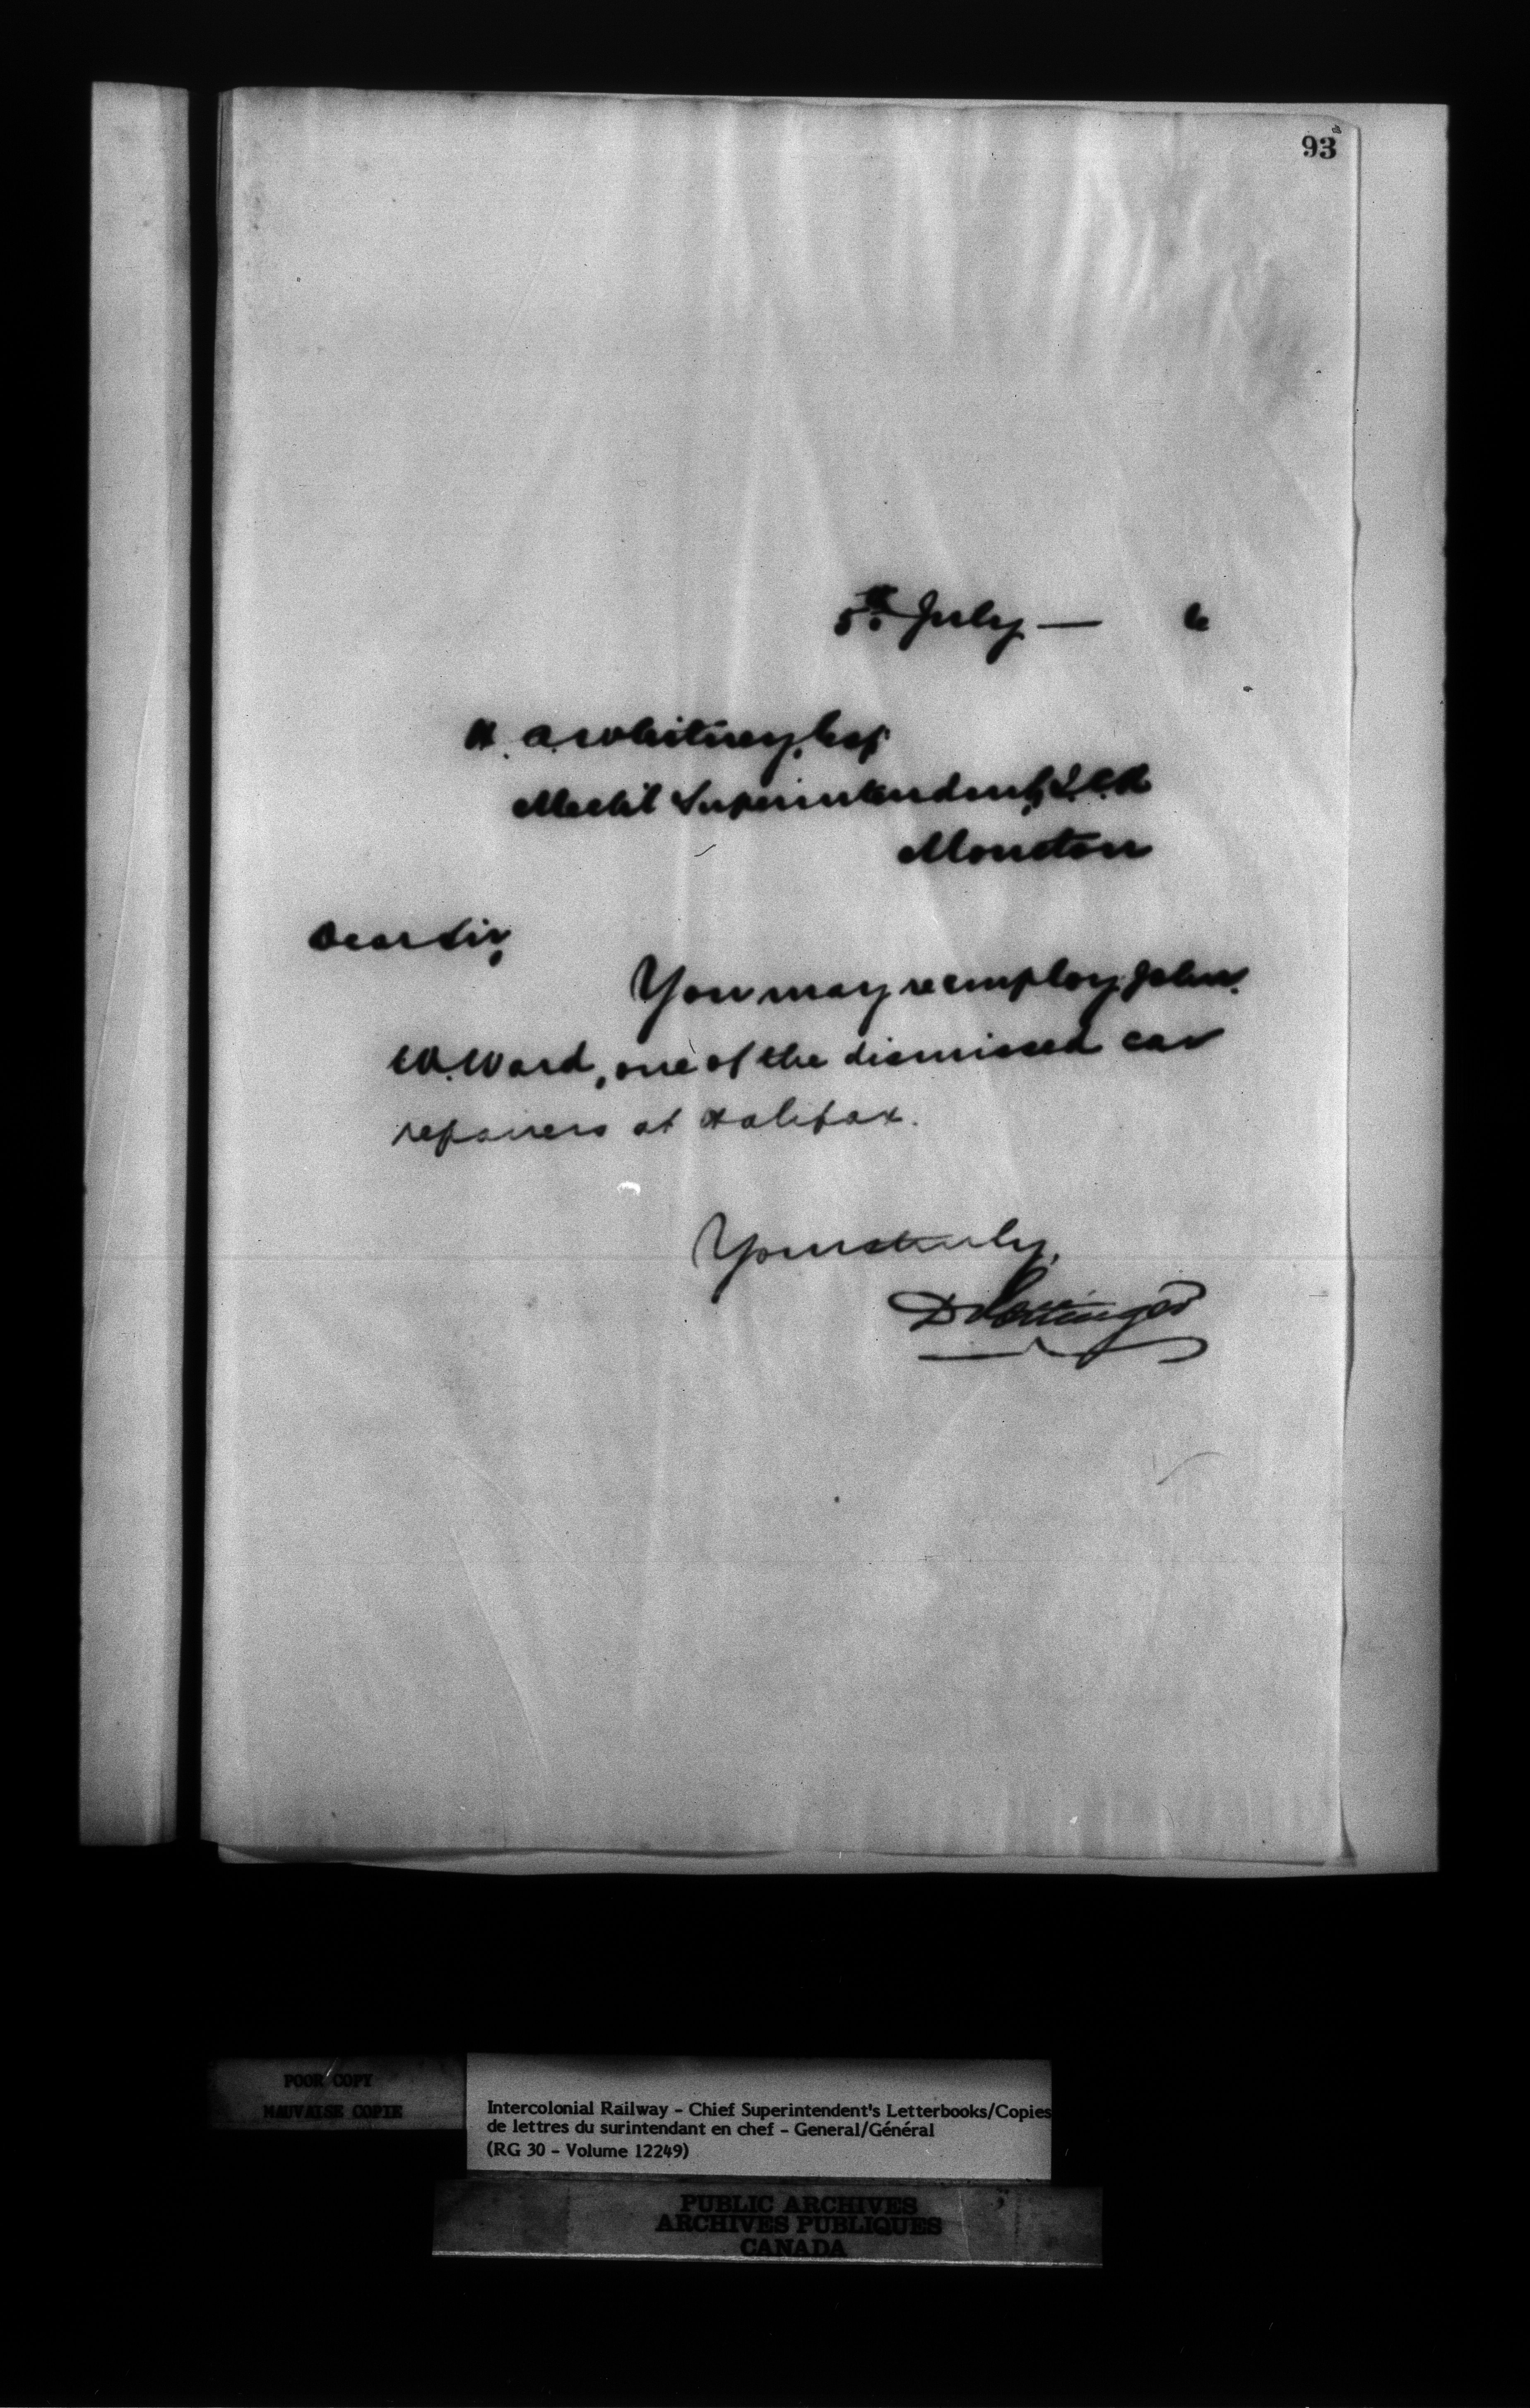 93
5th July — 6
H. A. Whitney, Esq
Mechl Superintendent, I.C.R
Moncton
Dear Sir,
You may reemploy John
W. Ward, one of the dismissed car
repairers at Halifax.
Yours truly,
D Pottinger
POOR COPY
MAUVAISE COPIE
Intercolonial Railway - Chief Superintendent's Letterbooks/Copies
de lettres du surintendant en chef - General/Général
(RG 30 - Volume 12249)
PUBLIC ARCHIVES
ARCHIVES PUBLIQUES
CANADA